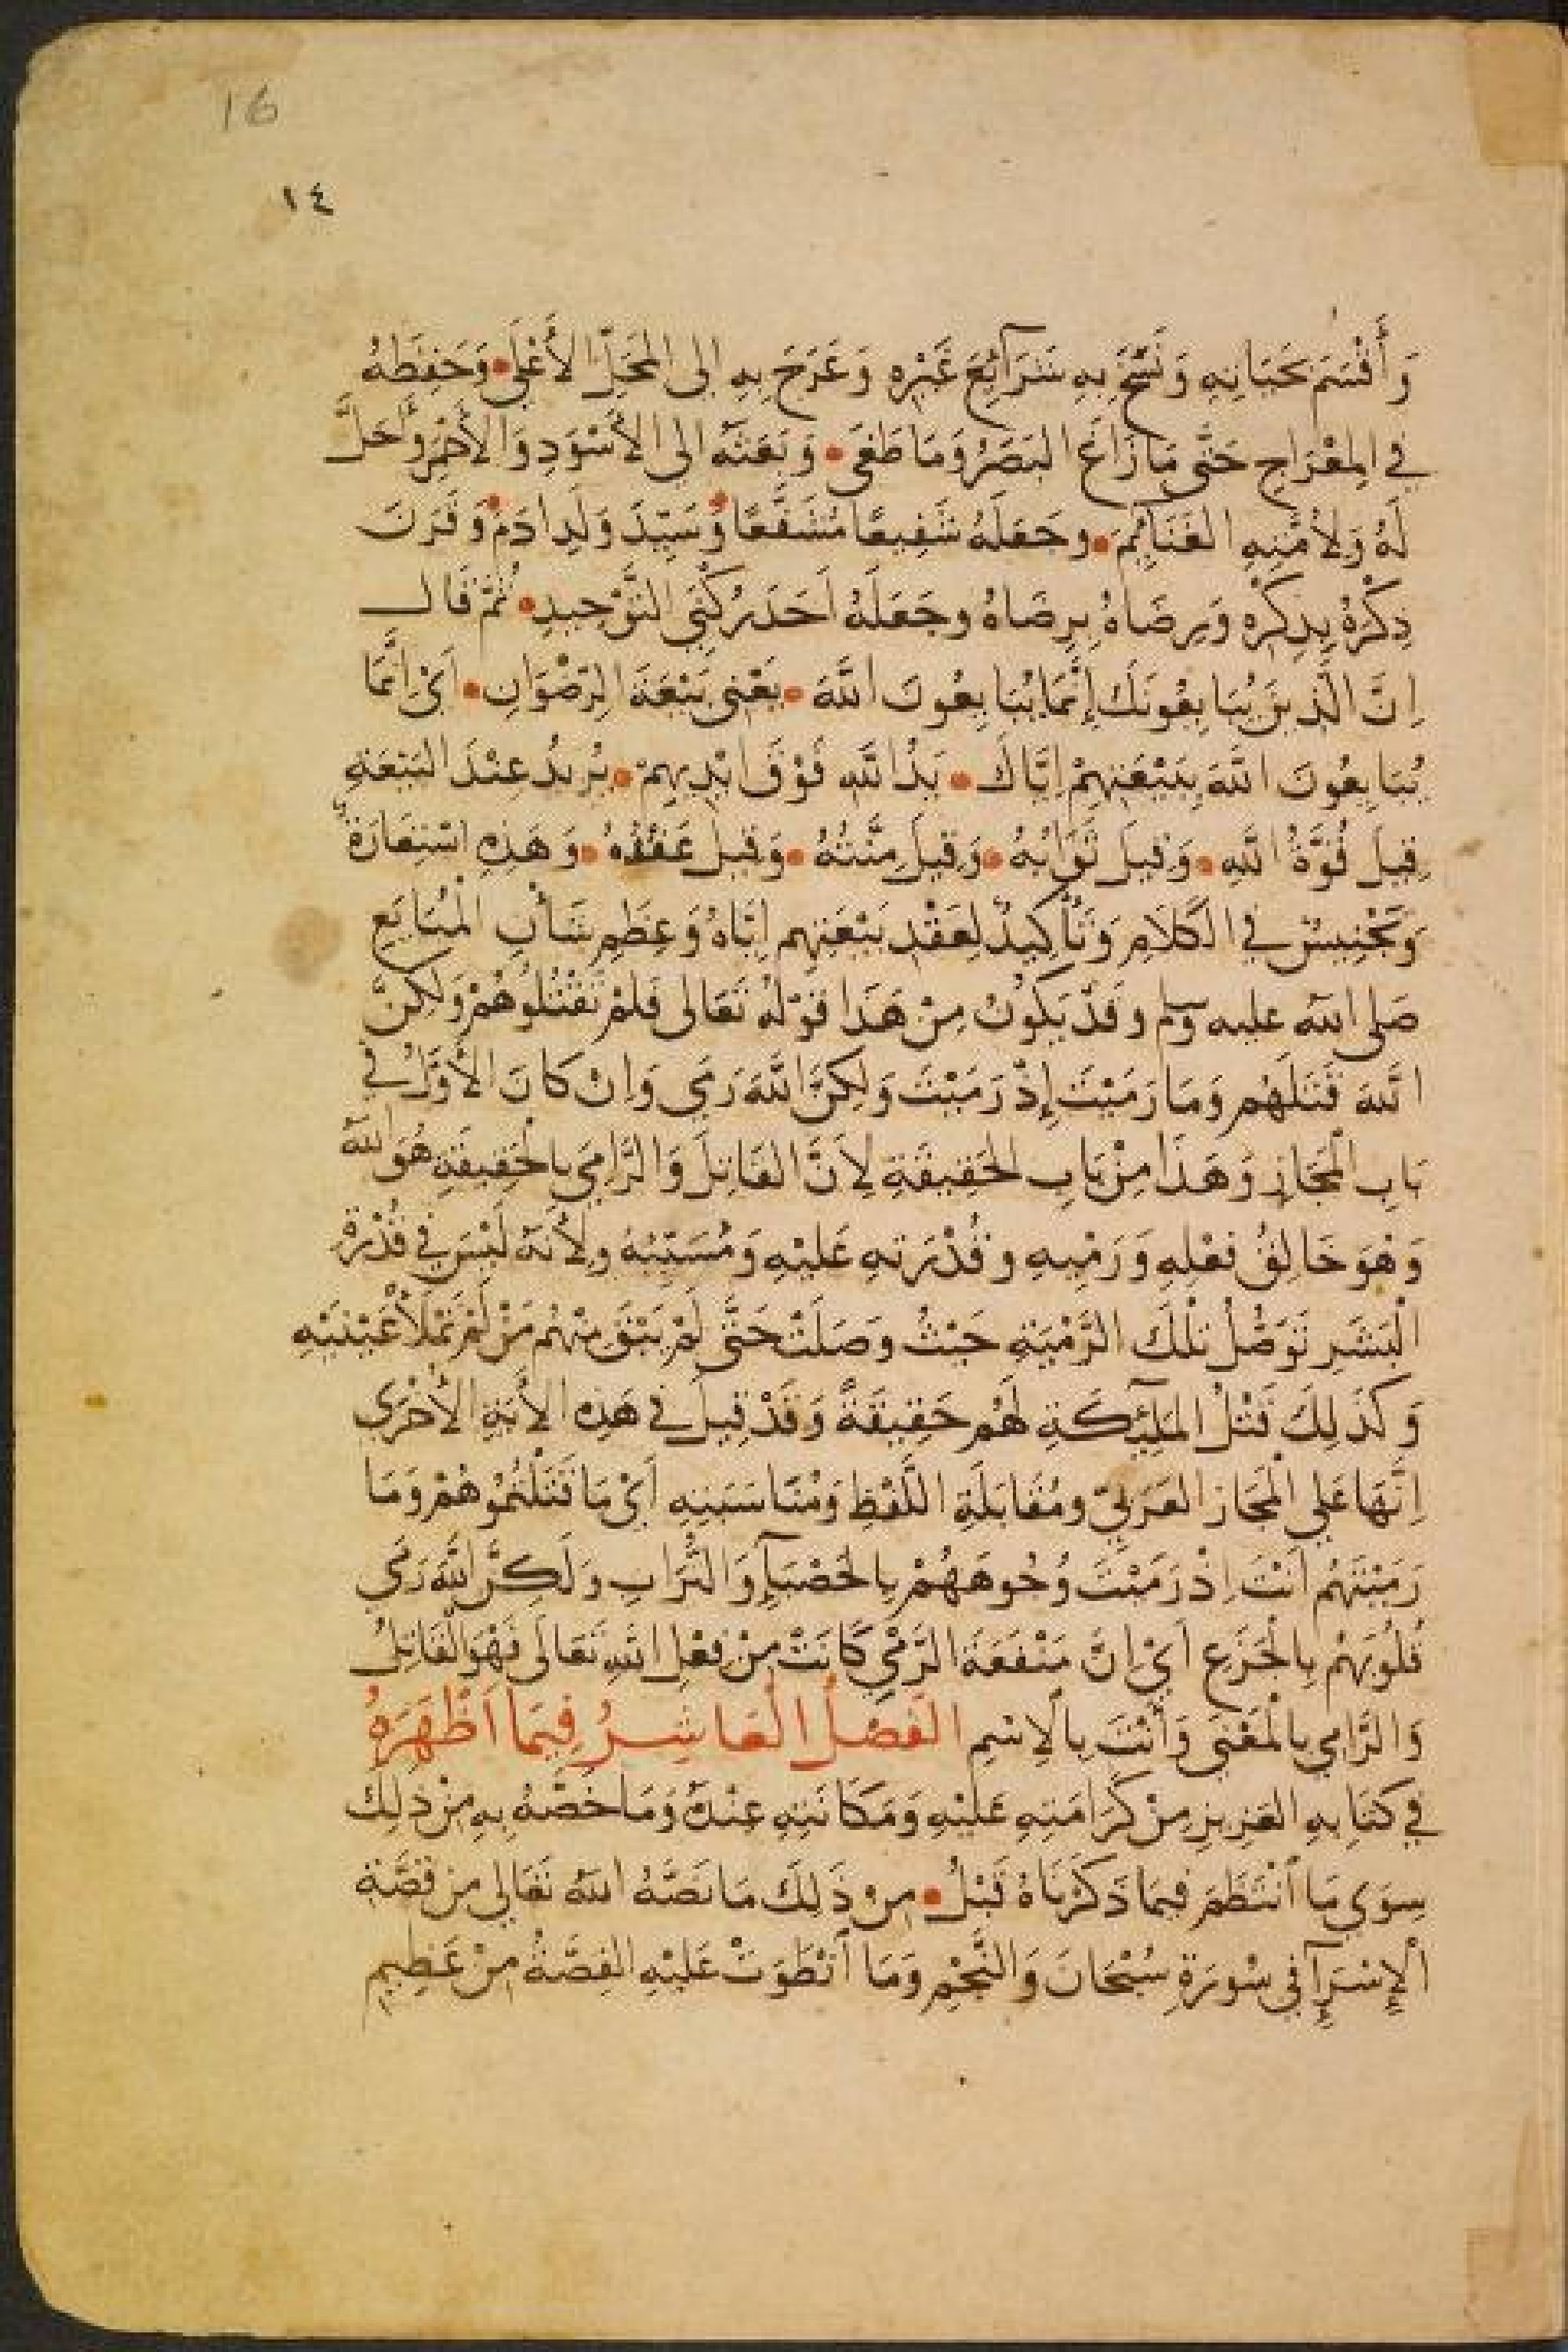 16
١٤
وَأَقْسَمَ بِحَيَاتِهِ وَنَسَخَ بِهِ شَرَآئِعَ غَيْرِهِ وَعَرَجَ بِهِ إِلى المَحَلِّ الأَعْلَى • وَحَفِظَهُ
في المِعْرَاجِ حَتَّى مَا زَاغَ البَصَرُ وَمَا طَغَى • وَبَعَثَهُ الى الأَسْوَدِ وَالأَحْمَرِ وَأَحَلَّ
لَهُ وَلِأُمَّتِهِ الغَنَائِمَ • وجَعَلَهُ شَفِيعًا مُشَفَّعًا • وَسَيِّدَ وَلَدِ ادَمَ • وَقَرَنَ
ذِكْرَهُ بِذِكْرِهِ وَرِضَاهُ بِرِضَاهُ وجَعَلَهُ اَحَدَ رُكْنَيِ التَّوْحِيدِ • ثُمَّ قَالَ
اِنَّ الَّذِينَ يُبَايِعُونَكَ إِنَّمَا يُبَايِعُونَ اللَّهَ • يَعْنِي بَيْعَةَ الرِّضْوَانِ • اَىْ اِنَّمَا
يُبَايِعُونَ اللَّهَ بِبَيْعَتِهِمْ اِيَّاكَ • يَدُ اللَّهِ فَوْقَ ايْدِيهِمْ • يُرِيدُ عِنْدَ البَيْعَةِ
قِيلَ قُوَّةُ اللَّهِ • وَقِيلَ ثَوَابُهُ • وَقِيلَ مِنَّتُهُ • وَقِيلَ عَقْدُهُ • وَهَذِهِ اسْتِعَارَةٌ
وَتَجْنِيسٌ في الكَلاَمِ وَتَأْكِيدٌ لِعَقْدِ بَيْعَتِهِم اِيَّاهُ وَعِظَمِ شَأْنِ الْمُبَايَعِ
صَلى الله عليه وسلم وقَدْ يَكُونُ مِنْ هَذَا قَوْلُهُ تَعَالى فَلَمْ تَقْتُلُوهُمْ وَلَكِنَّ
اللَّهَ قَتَلَهُم وَمَا رَمَيْتَ إِذْ رَمَيْتَ وَلَكِنَّ اللَّهَ رَمَى وَاِنْ كَانَ الأَوَّلُ في
بَابِ الْمَجَازِ وَهَذَا مِنْ بَابِ الحَقِيقَةِ لِاَنَّ القَاتِلَ وَالرَّامِيَ بِالحَقِيقَةِ هُوَ اللَّهُ
وَهُوَ خَالِقُ فِعْلِهِ وَرَمْيِهِ وقُدْرَتِهِ عَلَيْهِ وَمُسَبِّبُهُ ولِأَنَّهُ لَيْسَ في قُدْرَةِ
الْبَشَرِ تَوَصُّلُ تِلْكَ الرَّمْيَةِ حَيْثُ وَصَلَتْ حَتَّى لَمْ يَبْقَ مِنْهُم مَنْ لَمْ تَمْلَأْ عَيْنَيْهِ
وَكَذَلِكَ قَتْلُ المَلَئِكَةِ لَهُم حَقِيقَةً وَقَدْ قِيلَ في هَذِهِ الأَيَةِ الأُخْرَى
اِنَّهَا عَلى الْمَجَازِ العَرَبِيِّ ومُقَابَلَةِ اللَّفْظِ وَمُنَاسَبَتِهِ اَىْ مَا قَتَلْتُمُوهُمْ وَمَا
رَمَيْتَهُم اَنْتَ اِذْ رَمَيْتَ وُجُوهَهُمْ بِالحَصْبَآءِ وَالتُّرَابِ وَلَكِنَّ اللَّهَ رَمَى
قُلُوبَهُمْ بِالجَزَعِ اَىْ اِنَّ مَنْفَعَةَ الرَّمْيِ كَانَتْ مِنْ فِعْلِ اللَّهِ تَعَالَى فَهُوَ القَاتِلُ
وَالرَّامِي بِالْمَعْنَى وَأَنْتَ بِالاِسْمِ الفَصْلُ الْعَاشِرُ فِيمَا اَظْهَرَهُ
في كِتَابِهِ العَزِيزِ مِنْ كَرَامَتِهِ عَلَيْهِ وَمَكَانَتِهِ عِنْدَهُ وَمَا خَصَّهُ بِهِ مِنْ ذَلِكَ
سِوَى مَا انْتَظَمَ فِيمَا ذَكَرْنَاهُ قَبْلُ • مِنْ ذَلِكَ مَا نَصَّهُ اللهُ تَعَالى مِنْ قِصَّةِ
الْإِسْرَآءِ في سُورَةِ سُبْحَانَ وَالنَّجْمِ وَمَا انْطَوَتْ عَلَيْهِ القِصَّةُ مِنْ عَظِيمِ